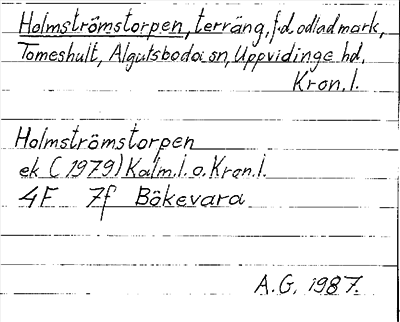 Holmströmstorpen, terräng, f.d. odlad mark,
Tomeshult, Algutsboda sn, Uppvidinge hd,
Kron. l.
Holmströmstorpen
ek (1979) Kalm. l. o. Kron. l.
4F 7f Bökevara
A.G. 1987.